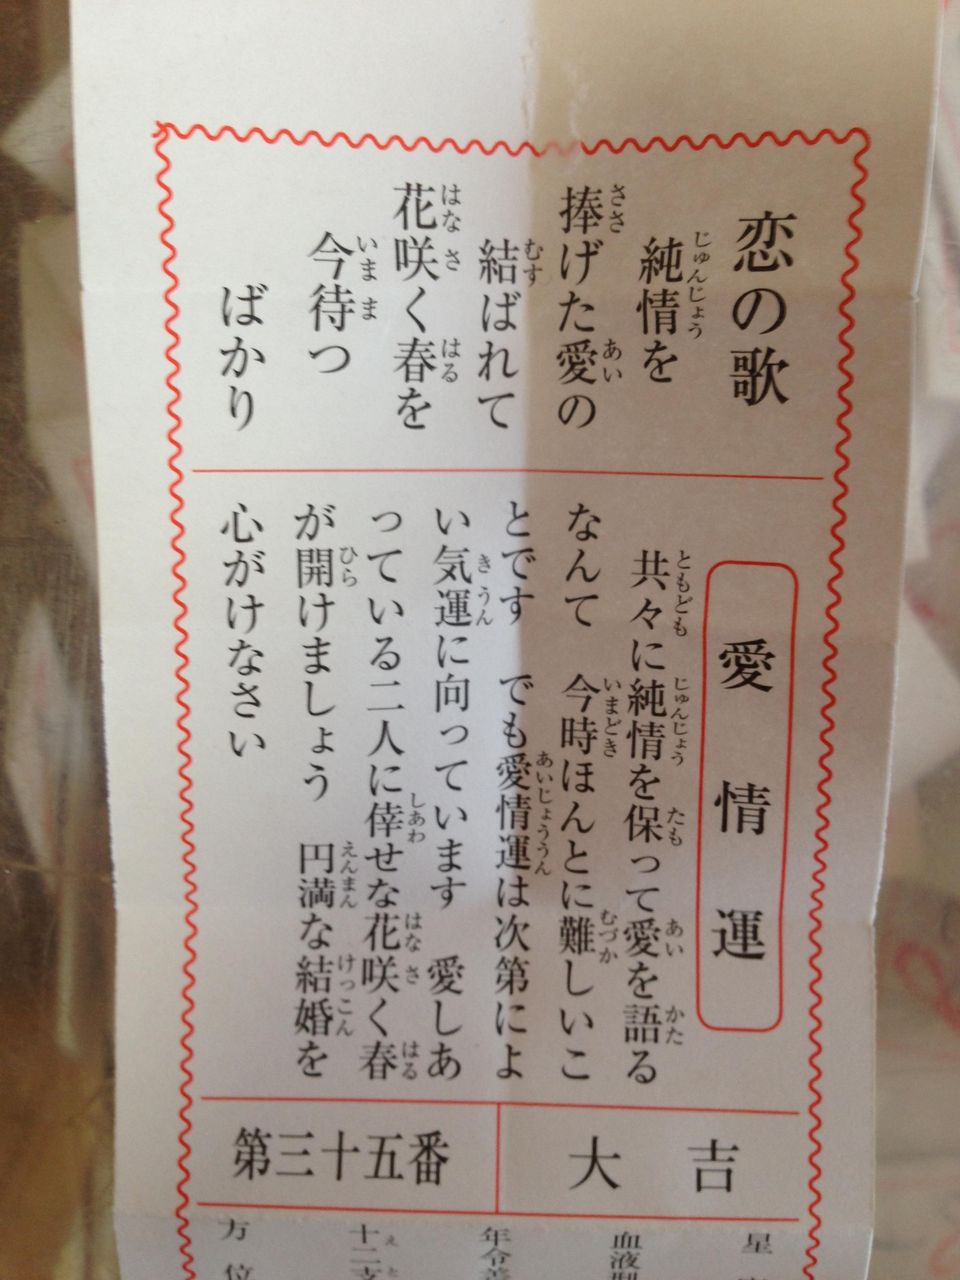 恋の歌
純情を
捧げた愛の
結ばれて
花咲く春を
今待つ
ばかり
愛情運
共々に純情を保って愛を語る
なんて　今時ほんとに難しいこ
とです　でも愛情運は次第によ
い気運に向っています　愛しあ
っている二人に倖せな花咲く春
が開けましょう　円満な結婚を
心がけなさい
大吉
第三十五番
星
血液型
年令差
十二支
方位